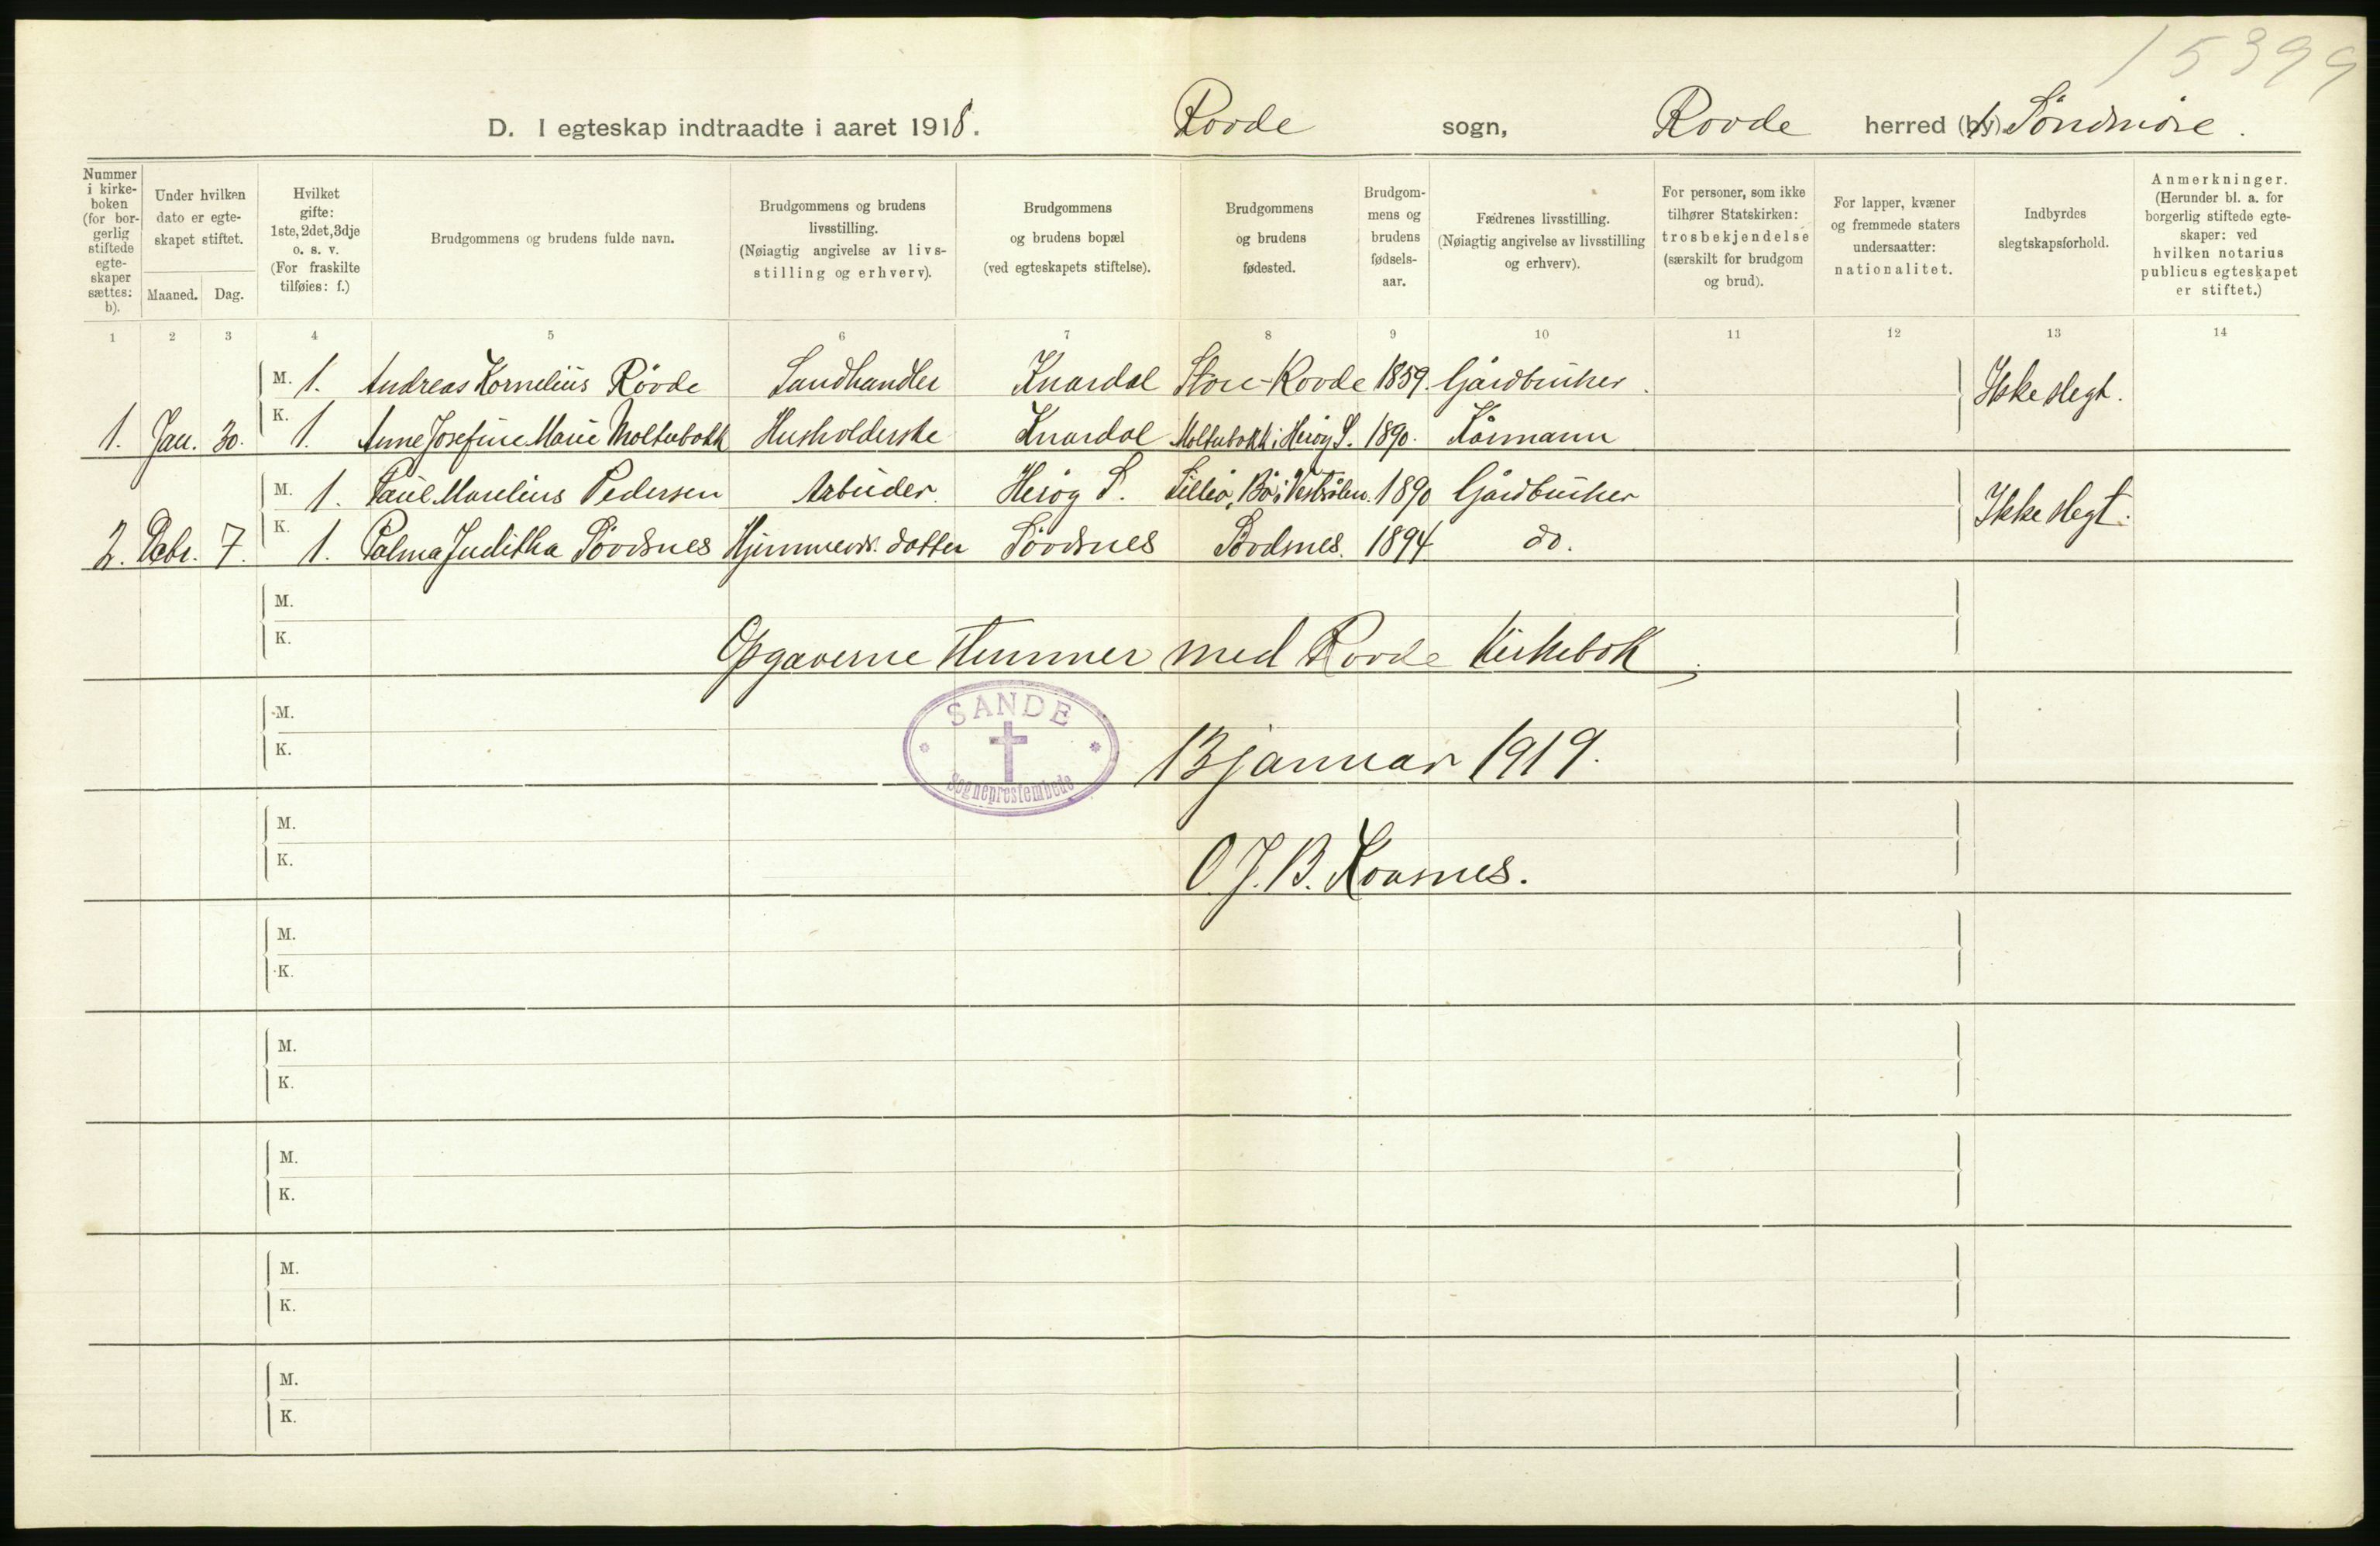 15399
D. I egteskap indtraadte i aaret 1918. Rovde sogn, Rovde herred (by) Söndmöre.
Nummer i kirkeboken (for borgerlig stiftede egteskaper sættes: b).
Under hvilken dato er egteskapet stiftet.
Maaned. Dag.
Hvilket gifte: 1ste, 2det, 3dje o. s. v. (For fraskilte tilføies: f.)
Brudgommens og brudens fulde navn.
Brudgommens og brudens livsstilling. (Nøiagtig angivelse av livsstilling og erhverv).
Brudgommens og brudens bopæl (ved egteskapets stiftelse).
Brudgommens og brudens fødested.
Brudgommens og brudens fødselsaar.
Fædrenes livsstilling. (Nøiagtig angivelse av livsstilling og erhverv).
For personer, som ikke tilhører Statskirken: trosbekjendelse (særskilt for brudgom og brud).
For lapper, kvæner og fremmede staters undersaatter: nationalitet.
Indbyrdes slegtskapsforhold.
Anmerkninger. (Herunder bl. a. for borgerlig stiftede egteskaper: ved hvilken notarius publicus egteskapet er stiftet.)
1 2 3 4 5 6 7 8 9 10 11 12 13 14
M. 1. Andreas Kornelius Rövde Landhandler Knardal Store-Rovde 1859. Gårdbruker. Ikke slegt.
1. Jan. 30. K. 1. Anne Josefine Marie Moltubakk Husholderske Knardal Moltubakk i Heröy S. 1890. Kårmann
M. 1. Paul Marelius Pedersen Arbeider. Heröy S. Bö i Vesterålen. 1890 Gårdbruker Ikke slegt.
2. Debr. 7. K. 1. Palma Juditha Sövdsnes datter Sövdsnes Sövdsnes. 1894. do.
M.
K.
Opgaverne stemmer med Rovde Kirkebok
M.
K.
SANDE
Sogneprestembede
13 januar 1919.
M.
K.
O. J. B.
M.
K.
M.
K.
M.
K.
M.
K.
M.
K.